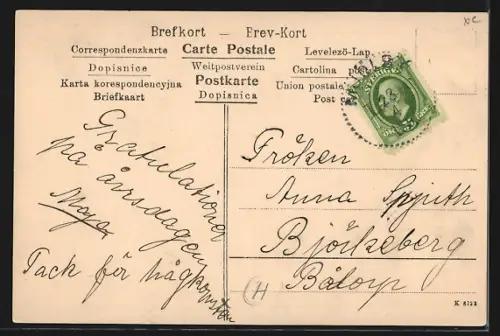 Brefkort — Brev-Kort
Correspondenzkarte Carte Postale Levelező-Lap
Dopisnice Weltpostverein Cartolina
Karta korespondencyjna Postkarte Union postale
Briefkaart Dopisnica Post
SVERIGE
Gratulationer
på årsdagen
Maja
Tack för hågkomsten
Fröken
Anna Spjuth
Björkeberg
H
K 8123